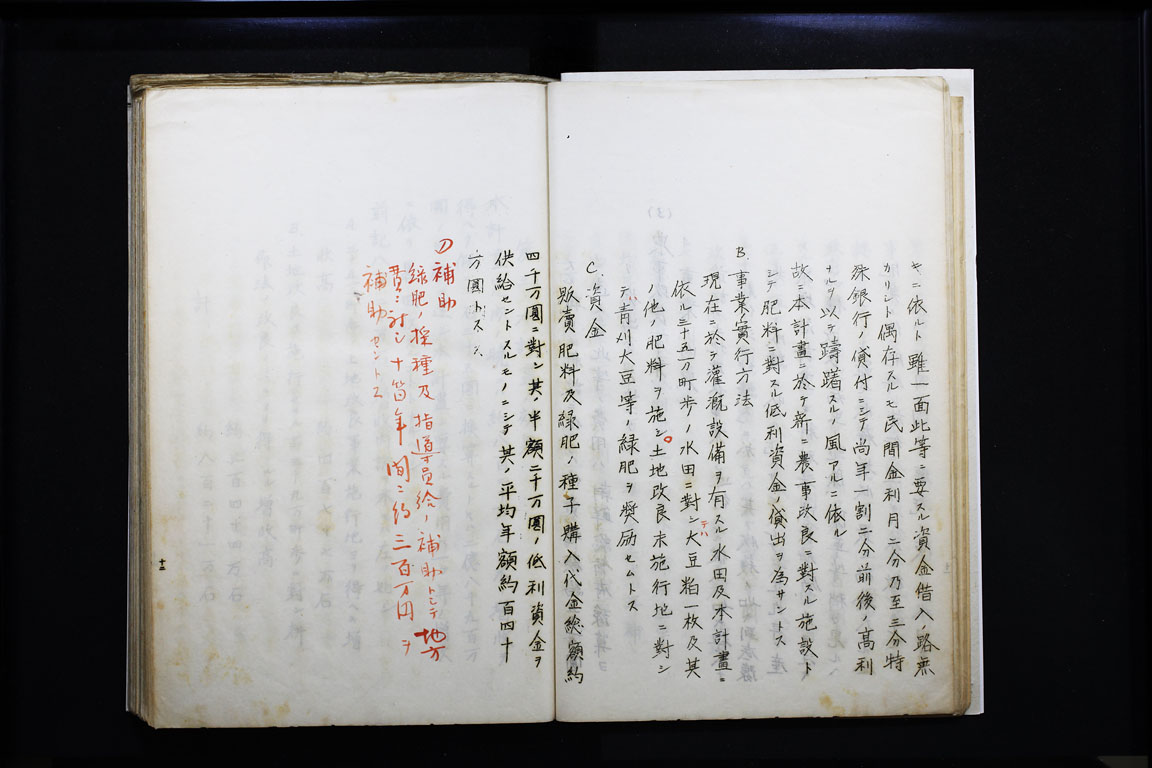 キニ依ルト雖一面此等ニ要スル資金借入ノ路無
カリシト偶存スルモ民間金利月二分乃至三分特
殊銀行ノ貸付ニシテ尚年一割二分前後ノ高利
ナルヲ以テ躊躇スルノ風アルニ依ル
故ニ本計畫ニ於テ新ニ農事改良ニ對スル施設ト
シテ肥料ニ對スル低利資金ノ貸出ヲ為サントス
B.事業實行方法
現在ニ於テ灌漑設備ヲ有スル水田及本計畫ニ
依ル三十五万町歩ノ水田ニ對シテハ大豆粕一枚及其
ノ他ノ肥料ヲ施シ。土地改良未施行地ニ對シ
テハ青刈大豆等ノ緑肥ヲ奨励セムトス
C.資金
販賣肥料及緑肥ノ種子購入代金総額約
四千万圓ニ對シ其ノ半額二千万圓ノ低利資金ヲ
供給セントスルモノニシテ其ノ平均年額約百四十
万圓トス
D補助
緑肥ノ採種及指導員給ノ補助トシテ地方
費ニ對シ十箇年間ニ約三百万円ヲ
補助セントス
十二